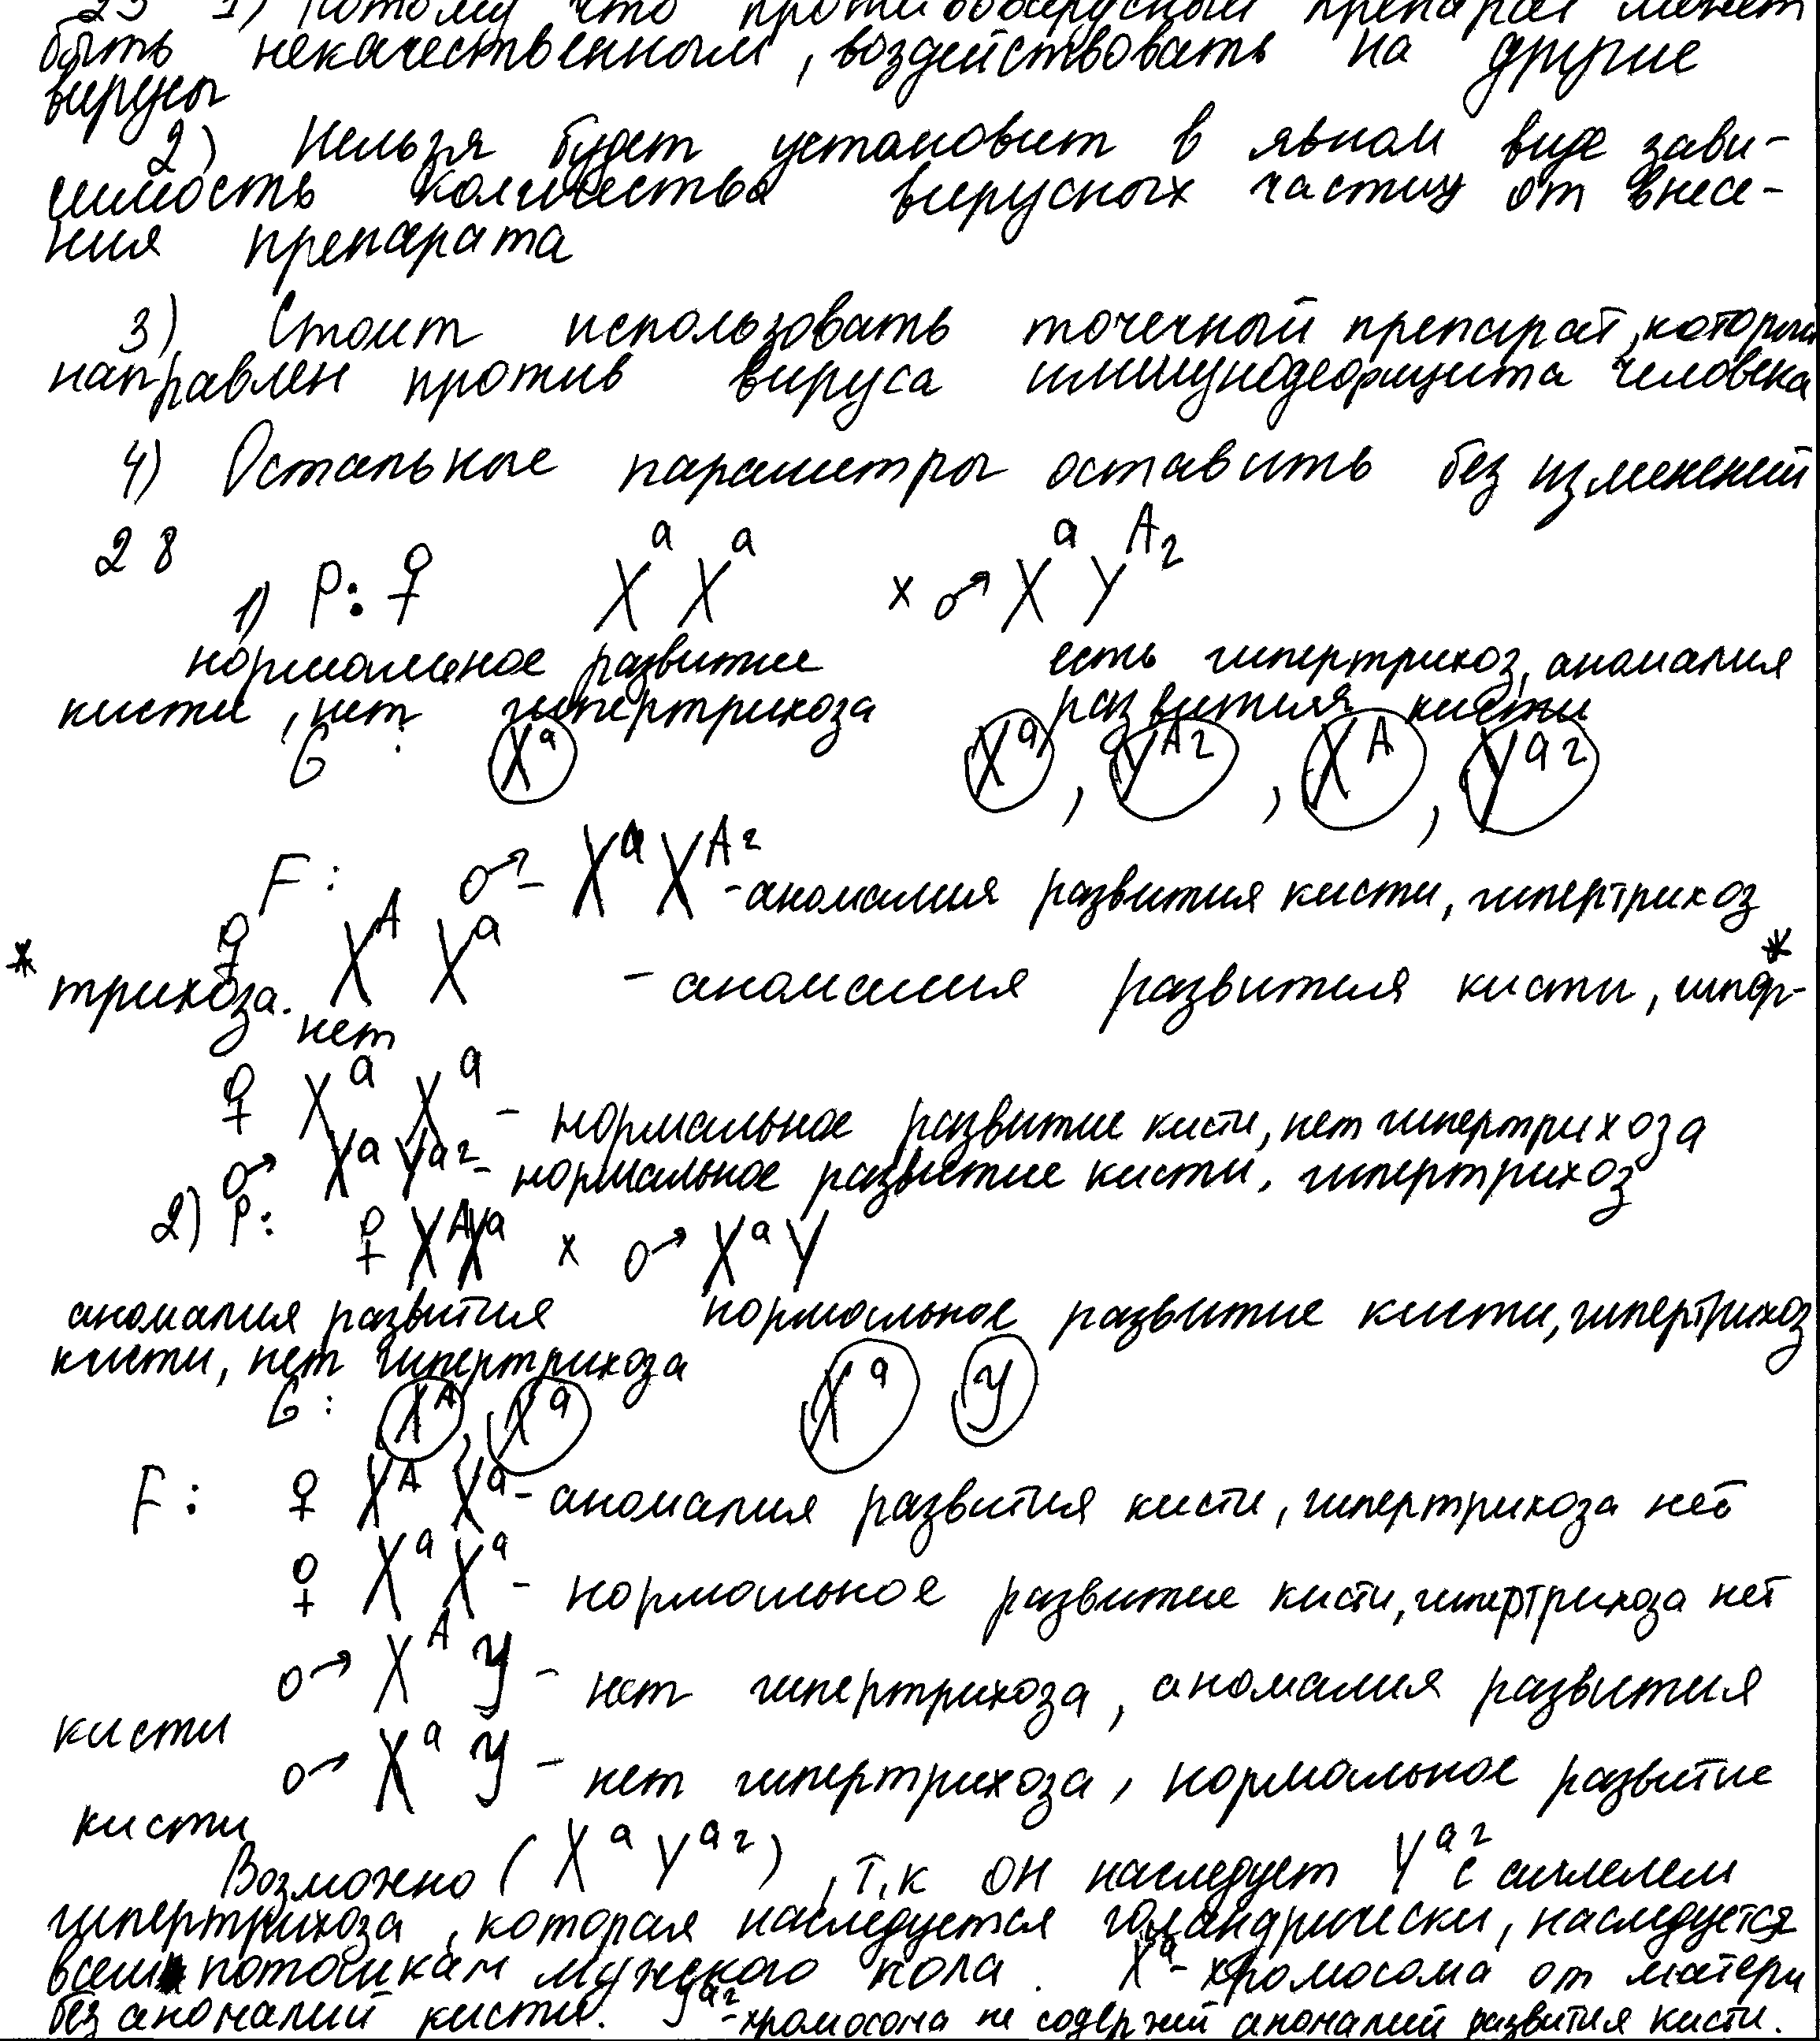 23 1) Потому что противовирусный препарат может
быть некачественным, воздействовать на другие
вирусы
2) Нельзя будет установит в явном виде зави-
симость количества вирусных частиц от внесе-
ния препарата
3) Стоит использовать точечный препарат, который
направлен против вируса иммунодефицита человека
4) Остальные параметры оставить без изменений
28
1) P: ♀ XᵃXᵃ x ♂ XᵃYᴬᵍ
нормальное развитие есть гипертрихоз, аномалия
кисти, нет гипертрихоза развития кисти
G: Xᵃ Xᵃ, Yᴬᵍ, Xᴬ, Yᵃᵍ
F: ♂ – XᵃXᴬᵍ - аномалия развития кисти, гипертрихоз
♀ XᴬXᵃ – аномалия развития кисти, гипер- *
* трихоза. нет
♀ XᵃXᵃ – нормальное развитие кисти, нет гипертрихоза
♂ XᵃYᵃᵍ - нормальное развитие кисти, гипертрихоз
2) P: ♀ XᴬXᵃ x ♂ XᵃY
аномалия развития нормальное развитие кисти, гипертрихоз
кисти, нет гипертрихоза
G: Xᴬ, Xᵃ Xᵃ Y
F: ♀ XᴬXᵃ - аномалия развития кисти, гипертрихоза нет
♀ XᵃXᵃ - нормальное развитие кисти, гипертрихоза нет
♂ XᴬY – нет гипертрихоза, аномалия развития
кисти
♂ XᵃY – нет гипертрихоза, нормальное развитие
кисти
Возможно (XᵃYᵃᵍ), т.к он наследует Yᵃᵍ с аллелем
гипертрихоза, которая наследуется голандрически, наследуется
всем потомкам мужского пола. Xᵃ - хромосома от матери
без аномалий кисти. Yᵃᵍ - хромосома не содержит аномалий развития кисти.